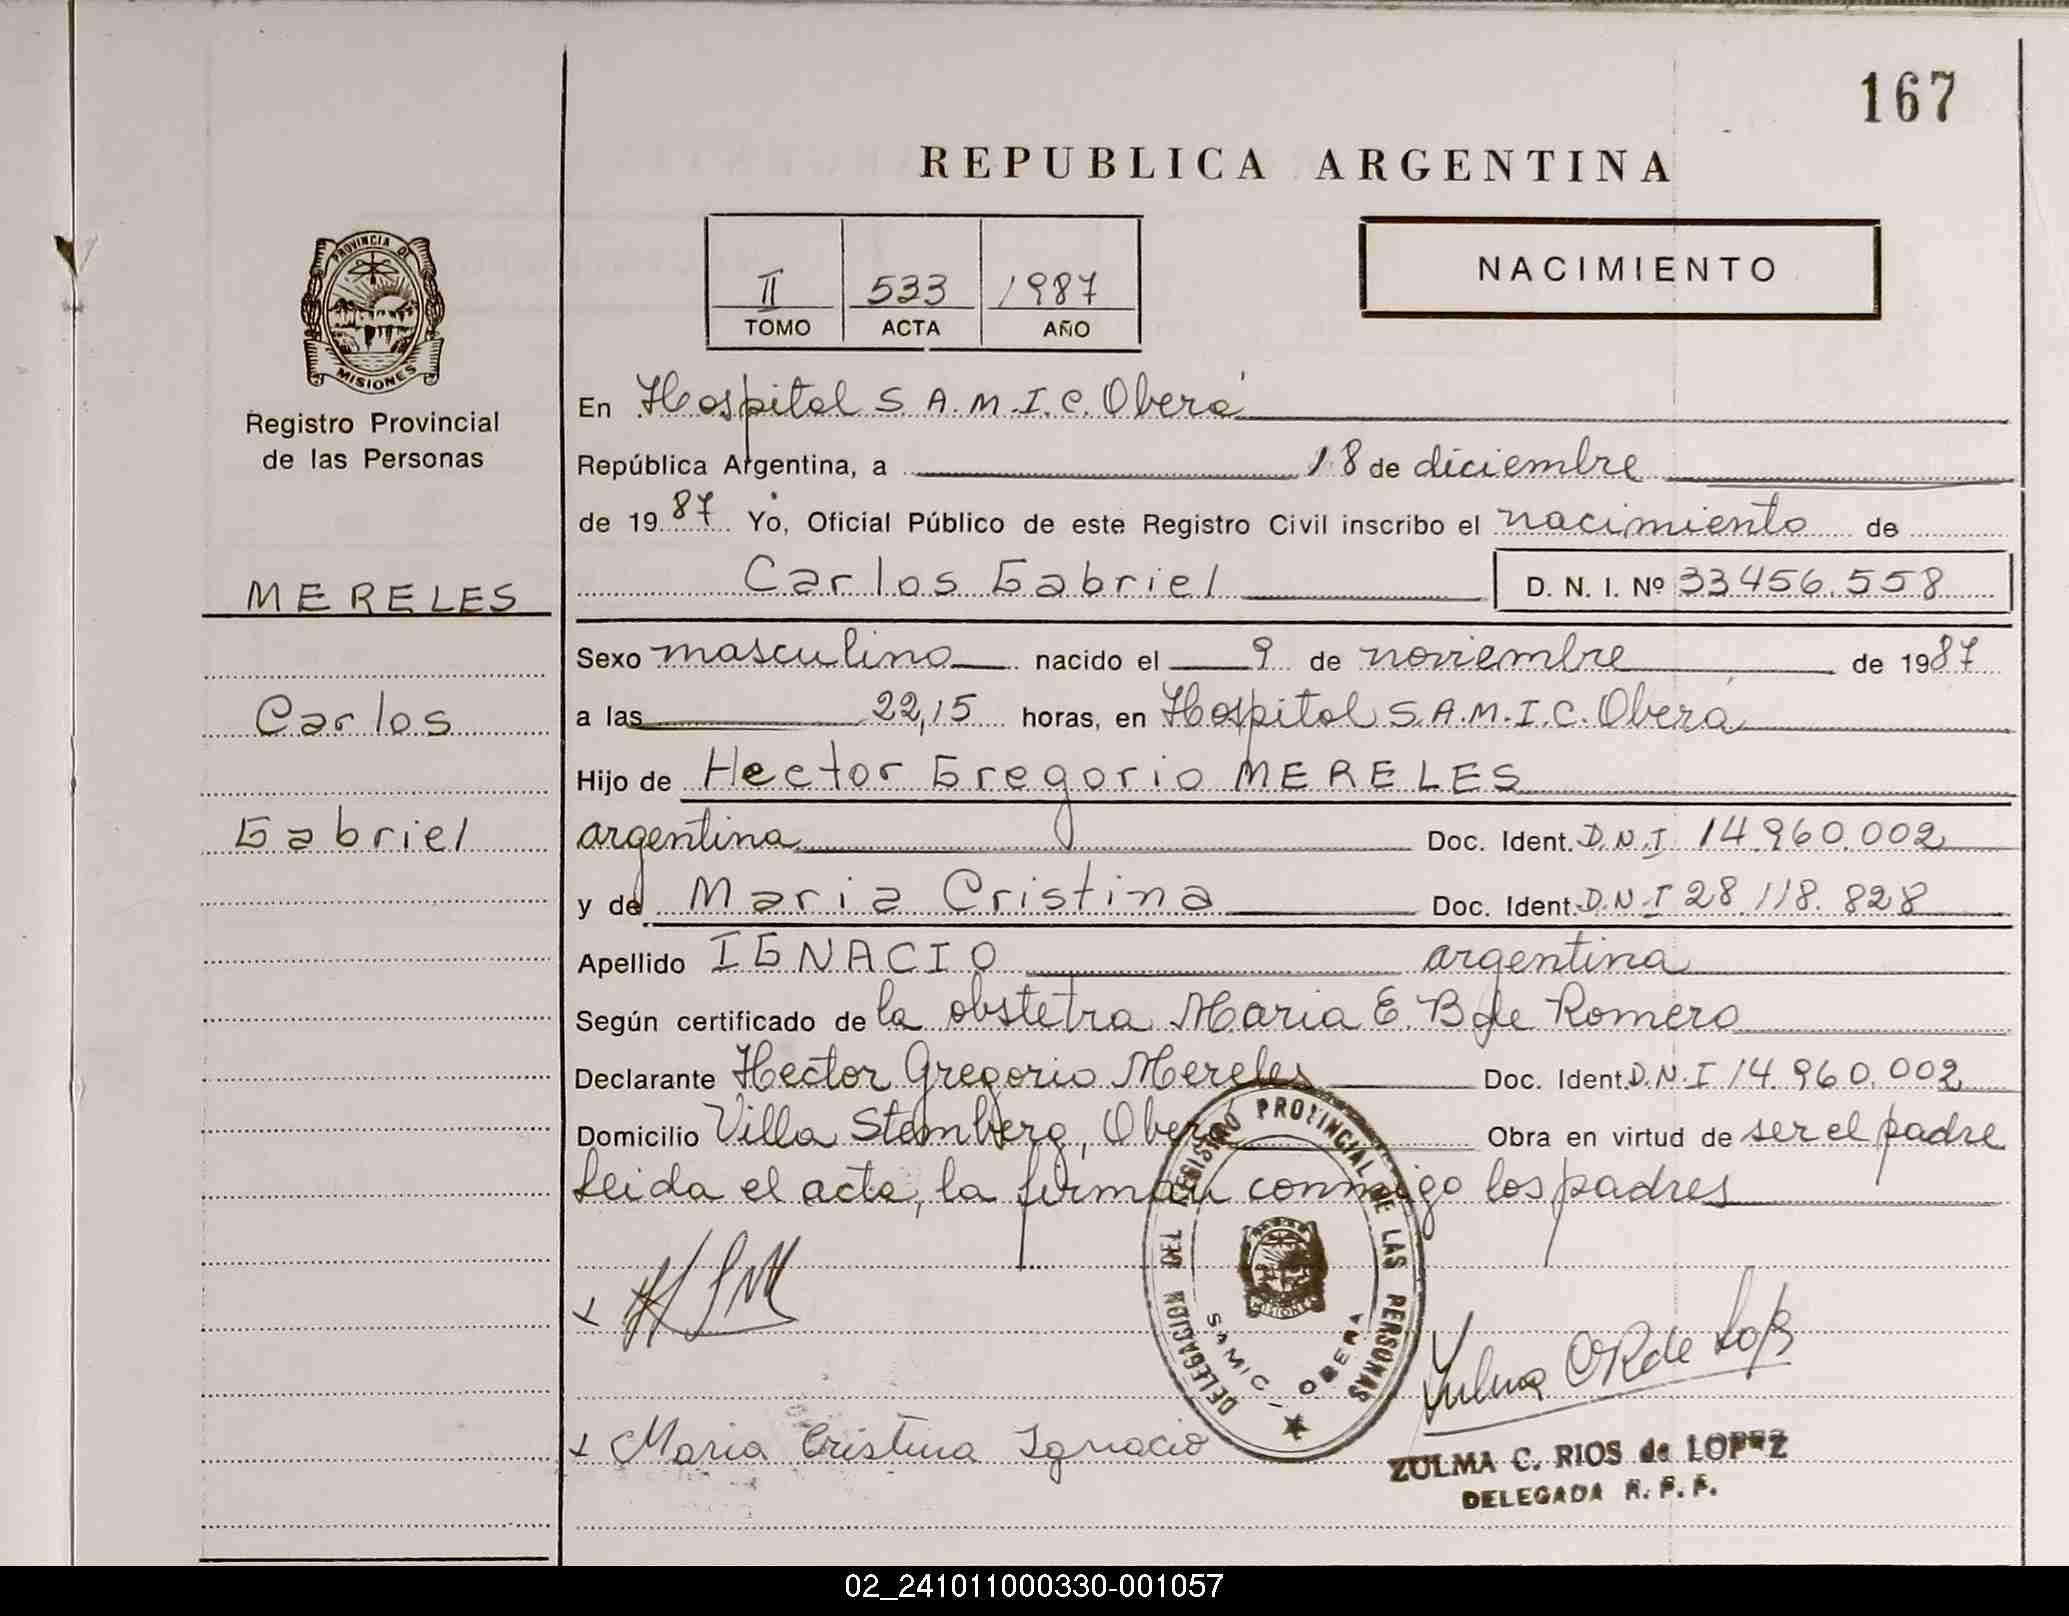 167
REPUBLICA ARGENTINA
II 533 1987
TOMO ACTA AÑO
NACIMIENTO
PROVINCIA DE
MISIONES
Registro Provincial
de las Personas
MERELES
Carlos
Gabriel
En Hospital S.A.M.I.C. Oberá
República Argentina, a 18 de diciembre
de 1987 Yo, Oficial Público de este Registro Civil inscribo el nacimiento de
Carlos Gabriel D. N. I. Nº 33.456.558
Sexo masculino nacido el 9 de noviembre de 1987
a las 22,15 horas, en Hospital S.A.M.I.C. Oberá
Hijo de Hector Gregorio MERELES
argentina Doc. Ident. D.N.I 14.960.002
y de Maria Cristina Doc. Ident. D.N.I 28.118.828
Apellido IGNACIO argentina
Según certificado de la obstetra Maria E. B de Romero
Declarante Hector Gregorio Mereles Doc. Ident. D.N.I 14.960.002
Domicilio Villa Stemberg, Oberá Obra en virtud de ser el padre
Leida el acta, la firman conmigo los padres
DELEGACION DEL REGISTRO PROVINCIAL DE LAS PERSONAS
MISIONES
SAMIC - OBERA
Zulma C R de Lopz
x Maria Cristina Ignacio
ZULMA C. RIOS de LOPEZ
DELEGADA R. P. P.
02_241011000330-001057